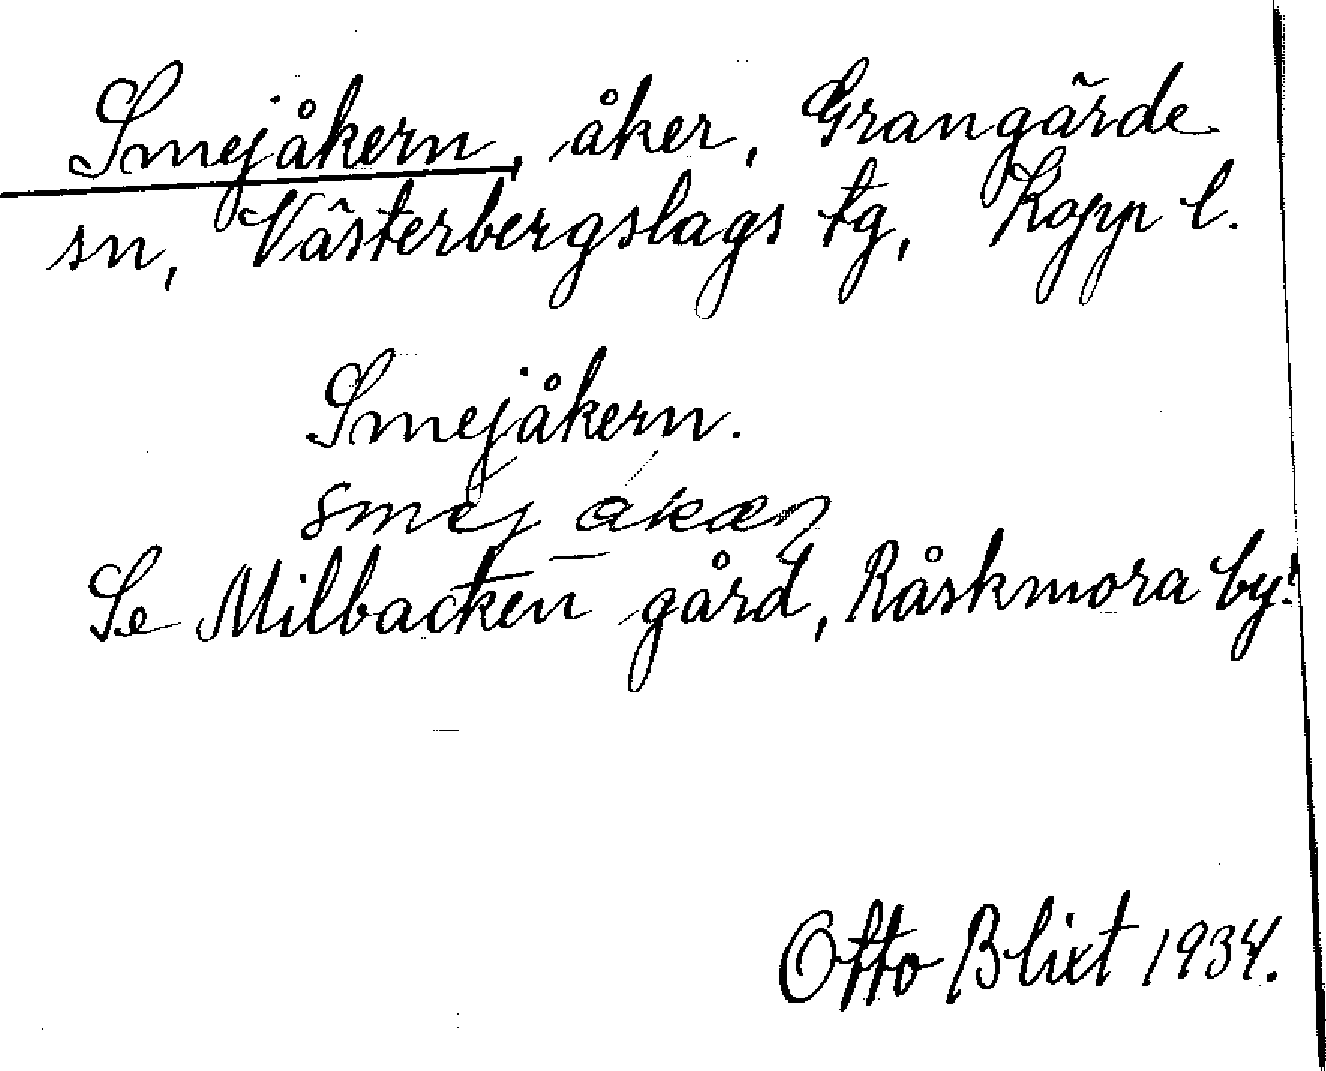 Smejåkern, åker, Grangärde
sn, Västerbergslags tg, Kopp l.
Smejåkern.
Se Milbacken gård, Råskmora by!
Otto Blixt 1934.